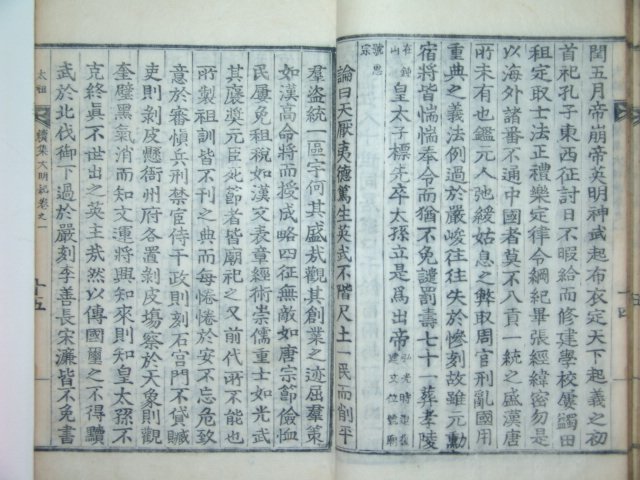 閏五月帝崩帝英明神武起布衣定天下起義之初
首祀孔子東西征討日不暇給而修建學校屢蠲田
租定取士法正禮樂定律令綱紀畢張經緯密勿是
以海外諸番不通中國者莫不入貢一統之盛漢唐
所未有也鑑元人弛縱姑息之弊取周官刑亂國用
重典之義法例過於嚴峻往往失於慘刻故雖元勳
宿將皆惴惴奉令而猶不免譴罰壽七十一葬孝陵
在鍾山 皇太子標先卒太孫立是爲出帝
號惠宗
論曰天厭夷德篤生英武不階尺土一民而削平
羣盜統一區宇何其盛哉觀其創業之迹屈羣策
如漢高命將而授成略四征無敵如唐宗節儉恤
民屢免租稅如漢文表章經術崇儒重士如光武
其襃奬元臣死節者皆廟祀之又前代所不能也
所製祖訓皆不刊之典而每惓惓於安不忘危致
意於審愼兵刑禁宦侍干政則刻石宮門不貸贓
吏則剝皮懸衙州府各置剝皮塲察於天象則觀
奎璧黑氣消而知文運將興知皇太孫不
克終眞不世出之英主㢤然以傳國璽之不得黷
武於北伐御下過於嚴刻李善長宋濂皆不免書
太祖 續集大明記卷之一 十五